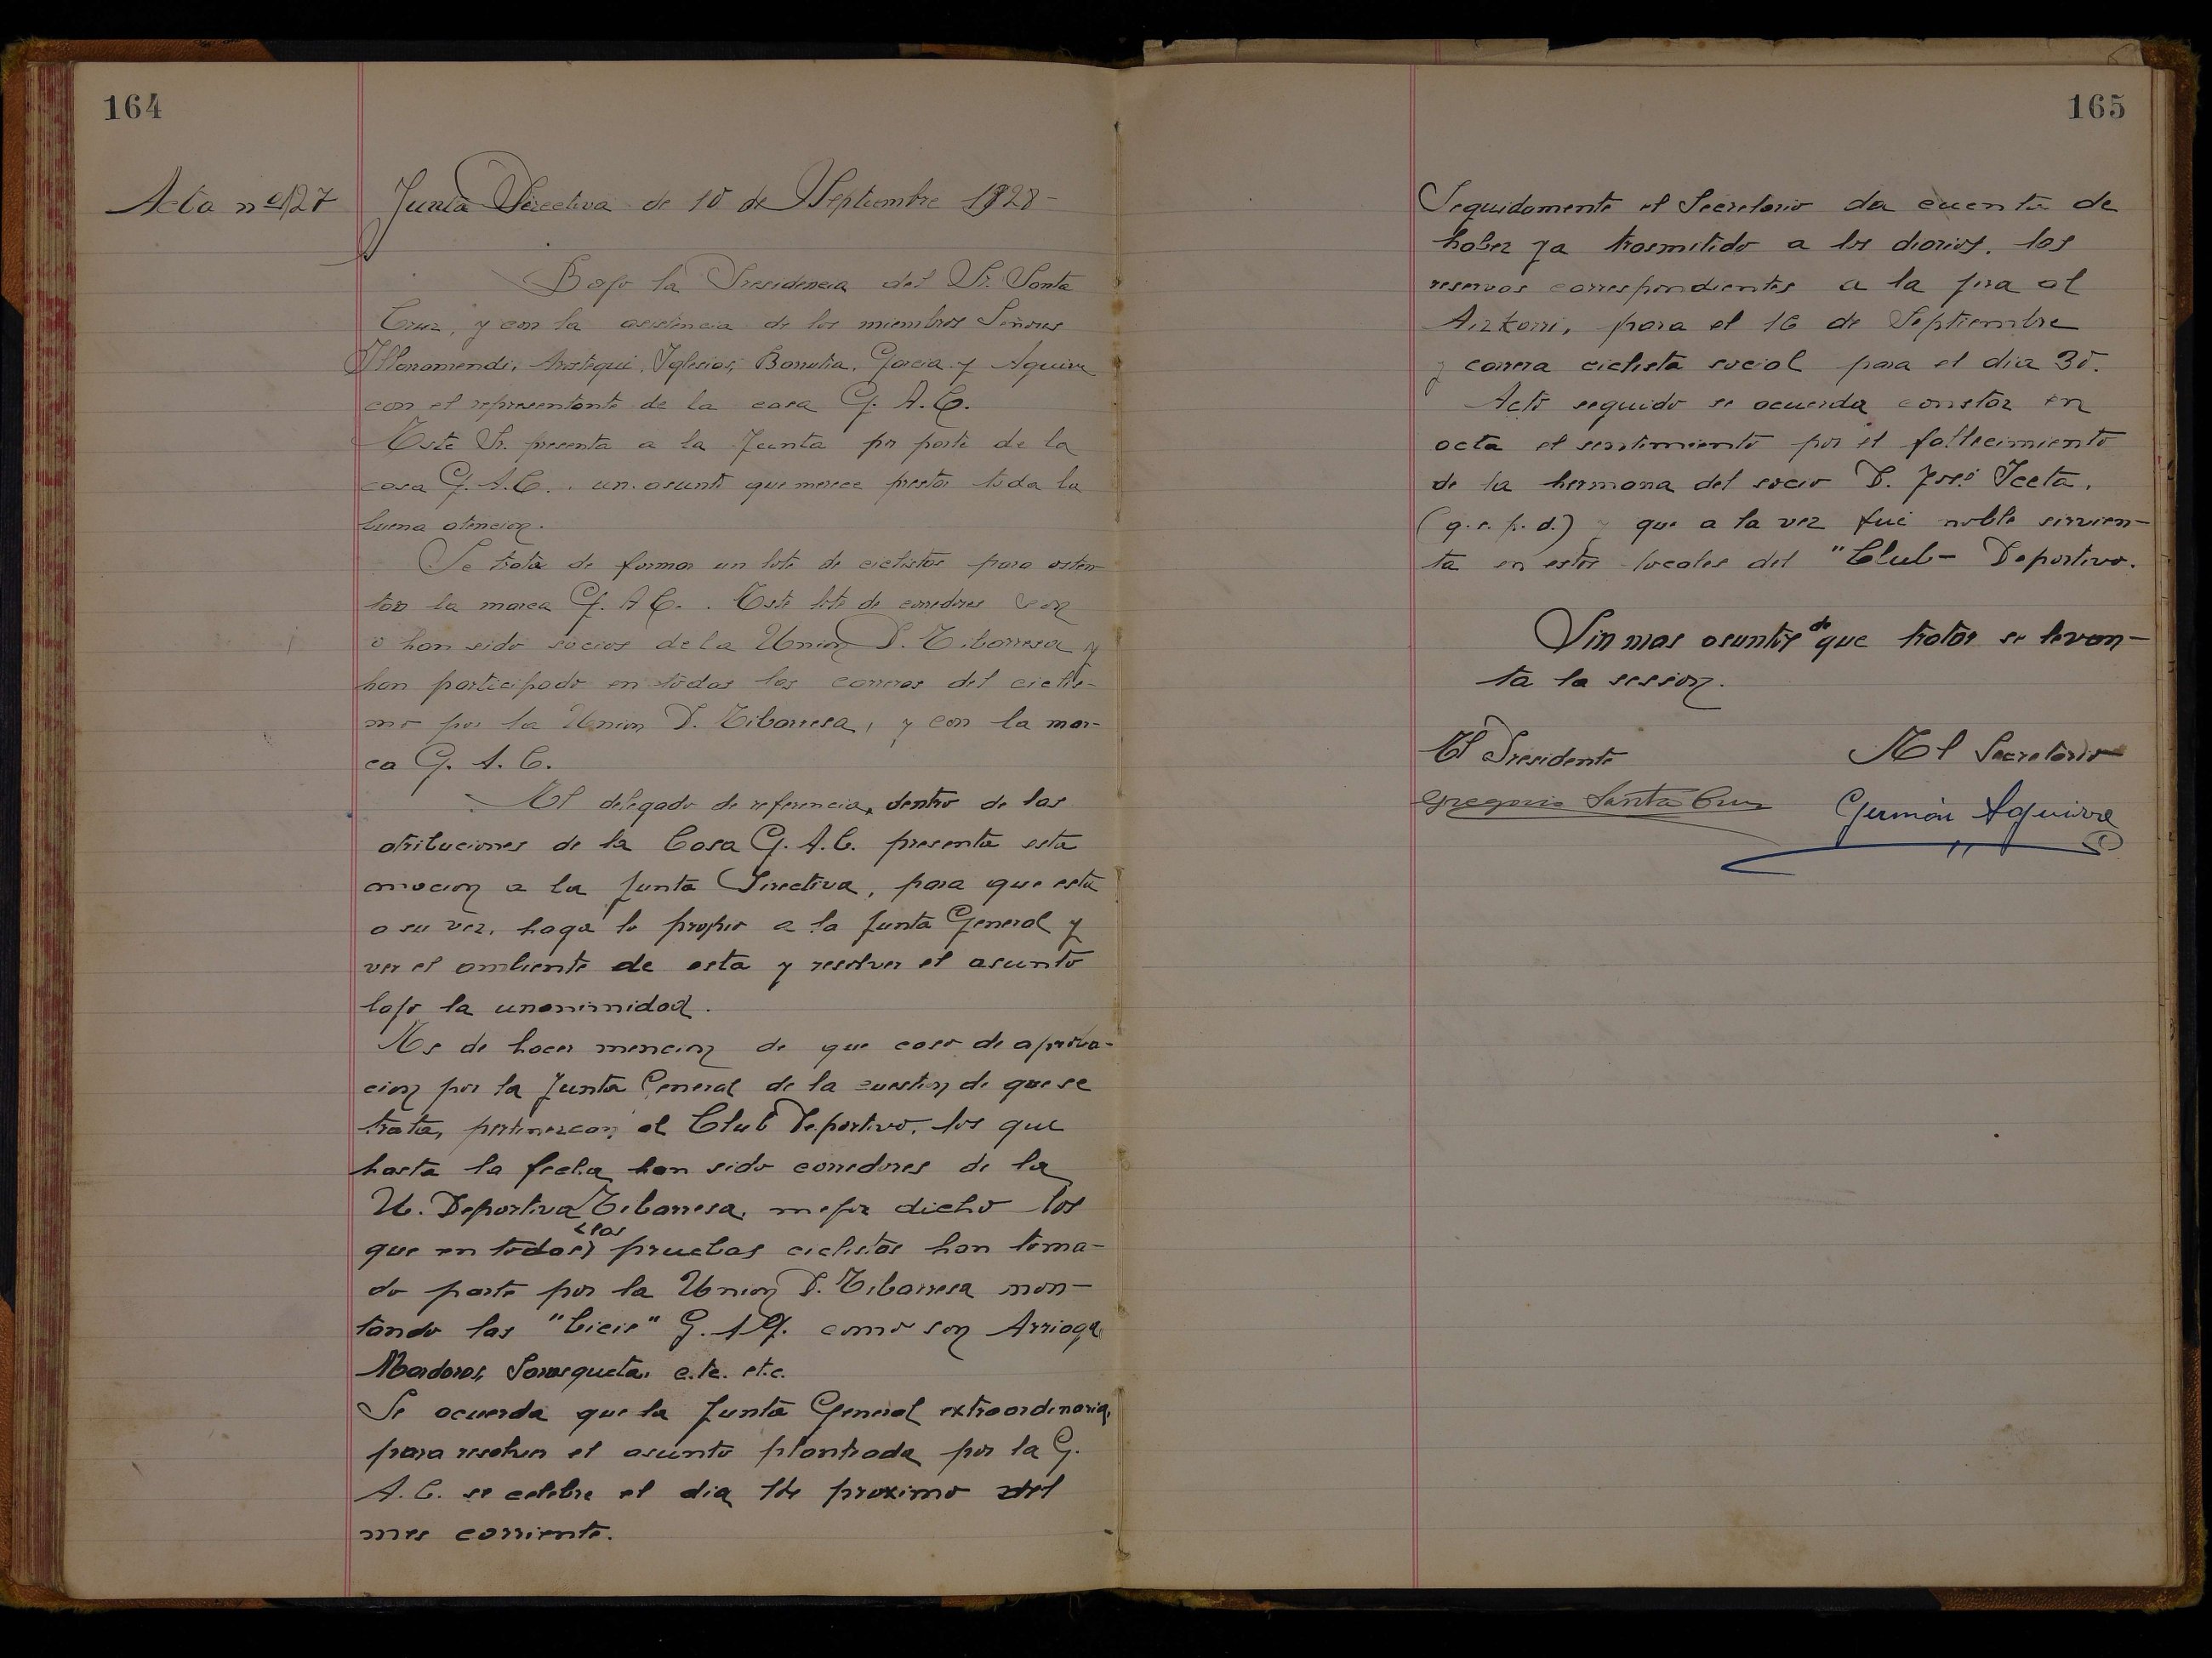 164
Acta nº 127 Junta Directiva de 10 de Septiembre 1928-
Bajo la Presidencia del Sr. Santa
Cruz, y con la asistencia de los miembros Señores
Aristegui, Iglesias, Barrutia, Garcia y Aguirre
con el representante de la casa G. A. C.
Este Sr. presenta a la Junta por parte de la
casa G. A. C. . un asunto que merece prestar toda la
buena atencion.
Se trata de formar un lote de ciclistas para osten-
tar la marca G. A C. . Este lote de corredores son
o han sido socios de la Union D. Eibarresa y
han participado en todas las carreras del ciclis-
mo por la Union D. Eibarresa, y con la mar-
ca G. A. C.
El delegado de referencia, dentro de las
atribuciones de la Casa G. A. C. presenta esta
mocion a la Junta Directiva, para que esta
a su vez, haga lo propio a la Junta General y
ver el ambiente de esta y resolver el asunto
bajo la unanimidad.
Es de hacer mencion de que caso de aprova-
cion por la Junta General de la cuestion de que se
trata, al Club Deportivo, los que
hasta la fecha han sido corredores de la
U. Deportiva Eibarresa, mejor dicho los
que en todas las pruebas ciclistas han toma-
do parte por la Union D. Eibarresa mon-
tando las "bicis" G. A. como son Arriaga
Sarasqueta, e.tc. et.c.
Se acuerda que la Junta General extraordinaria,
para resolver el asunto planteada por la G.
A. C. se celebre el dia 14 proximo del
mes corriente.
165
Seguidamente el Secretario da cuenta de
haber ya trasmitido a los diarios, las
reservas correspondientes a la jira al
Aizkorri, para el 16 de Septiembre
y carrera ciclista social para el dia 30.
Acto seguido se acuerda constar en
acta el sentimiento por el fallecimiento
de la hermana del socio D. José Iceta,
(q. e. p. d.) y que a la vez fué noble sirvien-
ta en estos locales del "Club- Deportivo.
Sin mas asuntos de que tratar se levan-
ta la session.
El Presidente El Secretario
Gregorio Santa Cruz Germán Aguirre